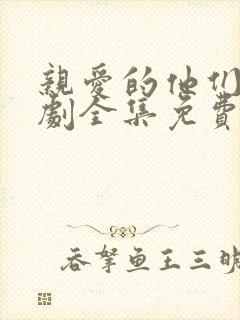 親愛的他们
劇全集免費
吞拏鱼王三明